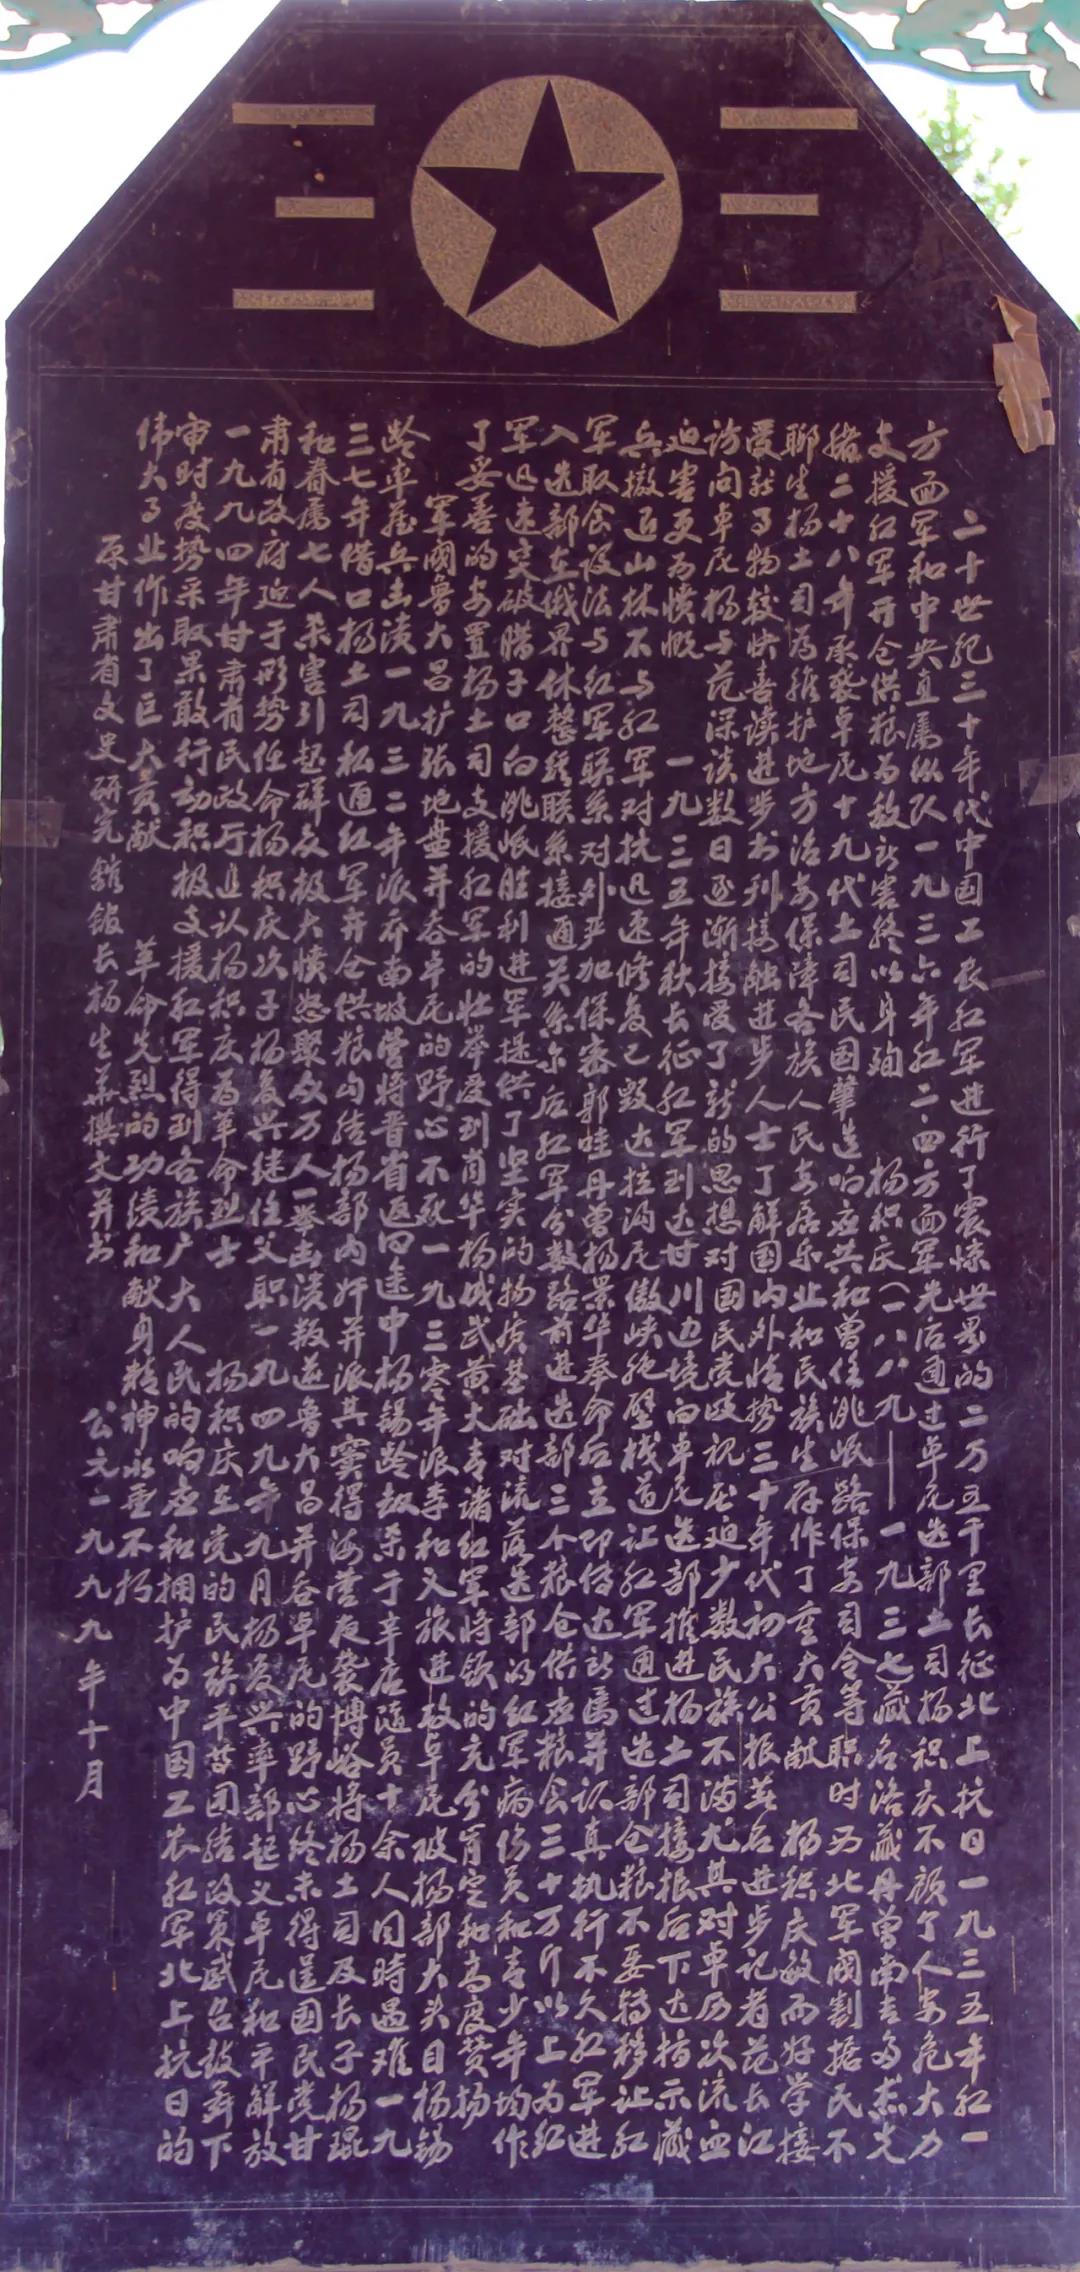 二十世纪三十年代中国工农红军进行了震惊世界的二万五千里长征北上抗日一九三五年红一
方面军和中央直属纵队一九三六年红二·四方面军先后通过卓尼迭部土司杨积庆不顾个人安危大力
支援红军开仓供粮为敌所害终以身殉 杨积庆(一八八九——一九三七)藏名洛藏丹曾南吉多杰先
绪二十八年承袭卓尼十九代土司民国肇造响应共和曾任洮岷路保安司令等职时西北军阀割据民不
聊生杨土司为维护地方治安保障各族人民安居乐业和民族生存作了重大贡献 杨积庆敏而好学接
受新事物较快喜读进步书刊接触进步人士了解国内外情势三十年代初大公报著名进步记者范长江
访问卓尼杨与范深谈数日逐渐接受了新的思想对国民党歧视压迫少数民族不满尤其对卓历次流血
迫害更为愤慨 一九三五年秋长征红军到达甘川边境向卓尼迭部推进杨土司接报后下达指示藏
兵撤近山林不与红军对抗迅速修复已毁达拉沟尼傲峡绝壁栈道让红军通过迭部仓粮不要转移让红
军取食设法与红军联系对外严加保密郭哇丹曾杨景华奉命后立即传达所属并认真执行不久红军进
入迭部在俄界休整经联系接通关系尔后红军分数路前进迭部三个粮仓供应粮食三十万斤以上为红
军迅速突破腊子口向洮岷胜利进军提供了坚实的物质基础对流落迭部的红军病伤员和青少年均作
了妥善的安置杨土司支援红军的壮举受到肖华杨成武黄大青诸红军将领的充分肯定和高度赞扬
军阀鲁大昌扩张地盘并吞卓尼的野心不死一九三零年派李和义旅进攻卓尼被杨部大头目杨锡
龄率藏兵击溃一九三二年派乔南坡营将晋省返回途中杨锡龄劫杀于辛店随员十余人同時遇难一九
三七年借口杨土司私通红军弃仓供粮勾结杨部内奸并派其窦得海营夜袭博峪将杨土司及长子杨琨
和眷属七人杀害引起群众极大愤怒聚众万人一举击溃叛逆鲁大昌并吞卓尼的野心终未得逞国民党甘
肃省政府迫于形势任命杨积庆次子杨复兴继任父职一九四九年九月杨复兴率部起义卓尼和平解放
一九九四年甘肃省民政厅追认杨积庆为革命烈士 杨积庆在党的民族平等团结政策感召鼓舞下
审时度势采取果敢行动积极支援红军得到各族广大人民的响应和拥护为中国工农红军北上抗日的
伟大事业作出了巨大贡献 革命先烈的功绩和献身精神永垂不朽
原甘肃省文史研究馆馆长杨生华撰文并书 公元一九九九年十月